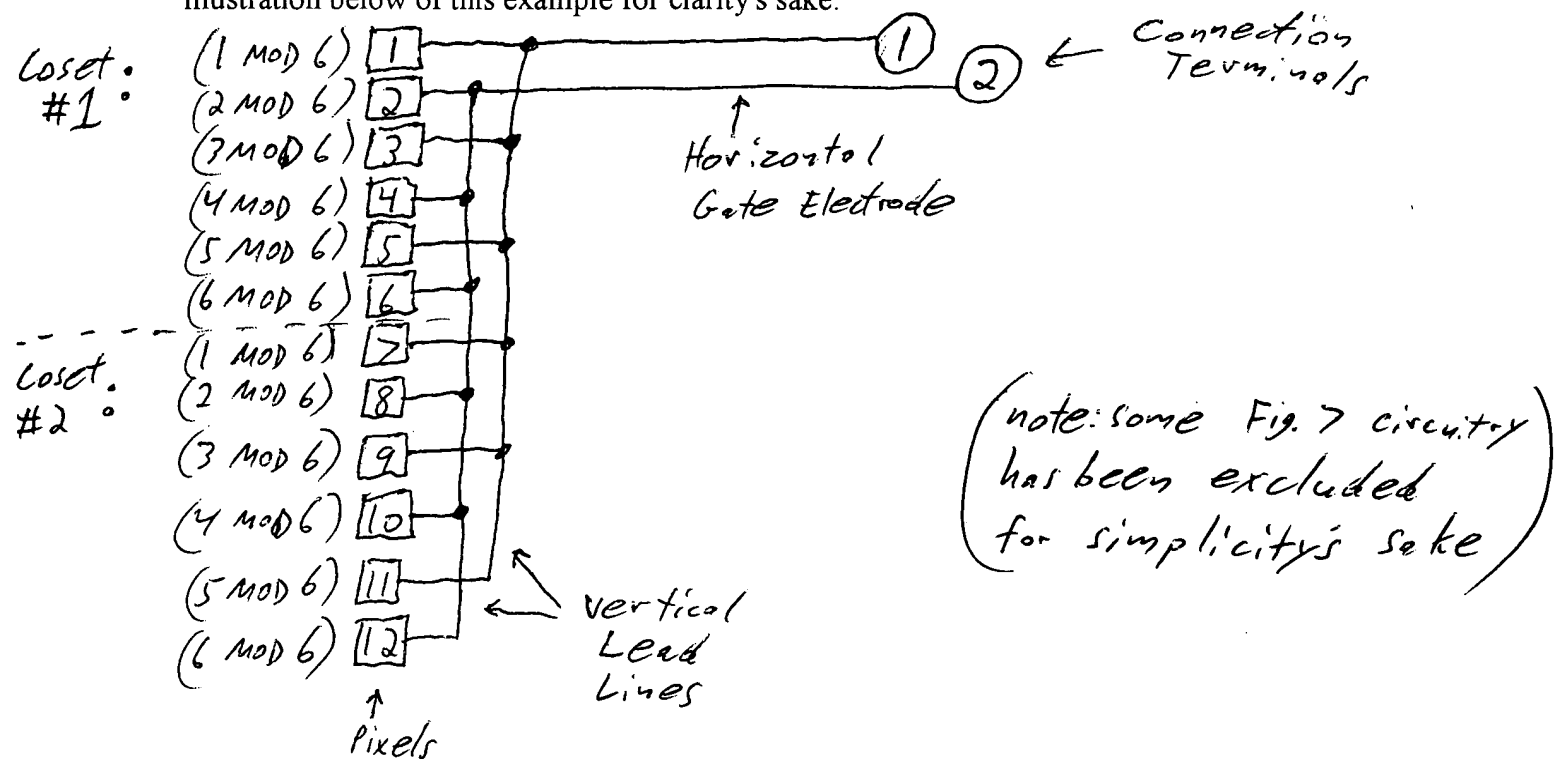 illustration below of this example for clarity's sake:
Coset #1:
(1 MOD 6) 1
(2 MOD 6) 2
(3 MOD 6) 3
(4 MOD 6) 4
(5 MOD 6) 5
(6 MOD 6) 6
Coset #2:
(1 MOD 6) 7
(2 MOD 6) 8
(3 MOD 6) 9
(4 MOD 6) 10
(5 MOD 6) 11
(6 MOD 6) 12
Pixels
1
2
Connection
Terminals
Horizontal
Gate Electrode
Vertical
Lead
Lines
(note: some Fig. 7 circuitry
has been excluded
for simplicity's sake)